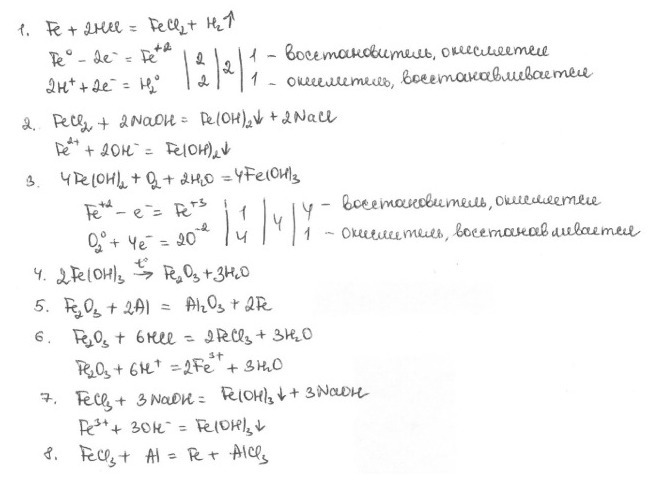 1. Fe + 2HCl = FeCl₂ + H₂↑
Fe⁰ - 2e⁻ = Fe⁺² | 2 | 2 | 1 - восстановитель, окисляется
2H⁺ + 2e⁻ = H₂⁰ | 2 | | 1 - окислитель, восстанавливается
2. FeCl₂ + 2NaOH = Fe(OH)₂↓ + 2NaCl
Fe²⁺ + 2OH⁻ = Fe(OH)₂↓
3. 4Fe(OH)₂ + O₂ + 2H₂O = 4Fe(OH)₃
Fe⁺² - e⁻ = Fe⁺³ | 1 | 4 | 4 - восстановитель, окисляется
O₂⁰ + 4e⁻ = 2O⁻² | 4 | | 1 - окислитель, восстанавливается
4. 2Fe(OH)₃ →t° Fe₂O₃ + 3H₂O
5. Fe₂O₃ + 2Al = Al₂O₃ + 2Fe
6. Fe₂O₃ + 6HCl = 2FeCl₃ + 3H₂O
Fe₂O₃ + 6H⁺ = 2Fe³⁺ + 3H₂O
7. FeCl₃ + 3NaOH = Fe(OH)₃↓ + 3NaOH
Fe³⁺ + 3OH⁻ = Fe(OH)₃↓
8. FeCl₃ + Al = Fe + AlCl₃